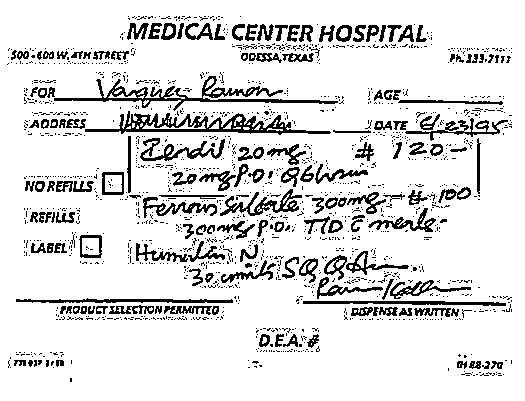 MEDICAL CENTER HOSPITAL
500-600 W. 4TH STREET ODESSA, TEXAS Ph. 333-7111
FOR Vasquez, Ramon AGE
ADDRESS DATE 6/23/95
20mg # 120 -
20mg P.O. Q6hours
NO REFILLS
Ferrous Sulfate 300mg # 100
REFILLS
300mg P.O. TID c meals
LABEL
Humulin N
30 units SQ QAM
PRODUCT SELECTION PERMITTED DISPENSE AS WRITTEN
D.E.A. #
0188-270